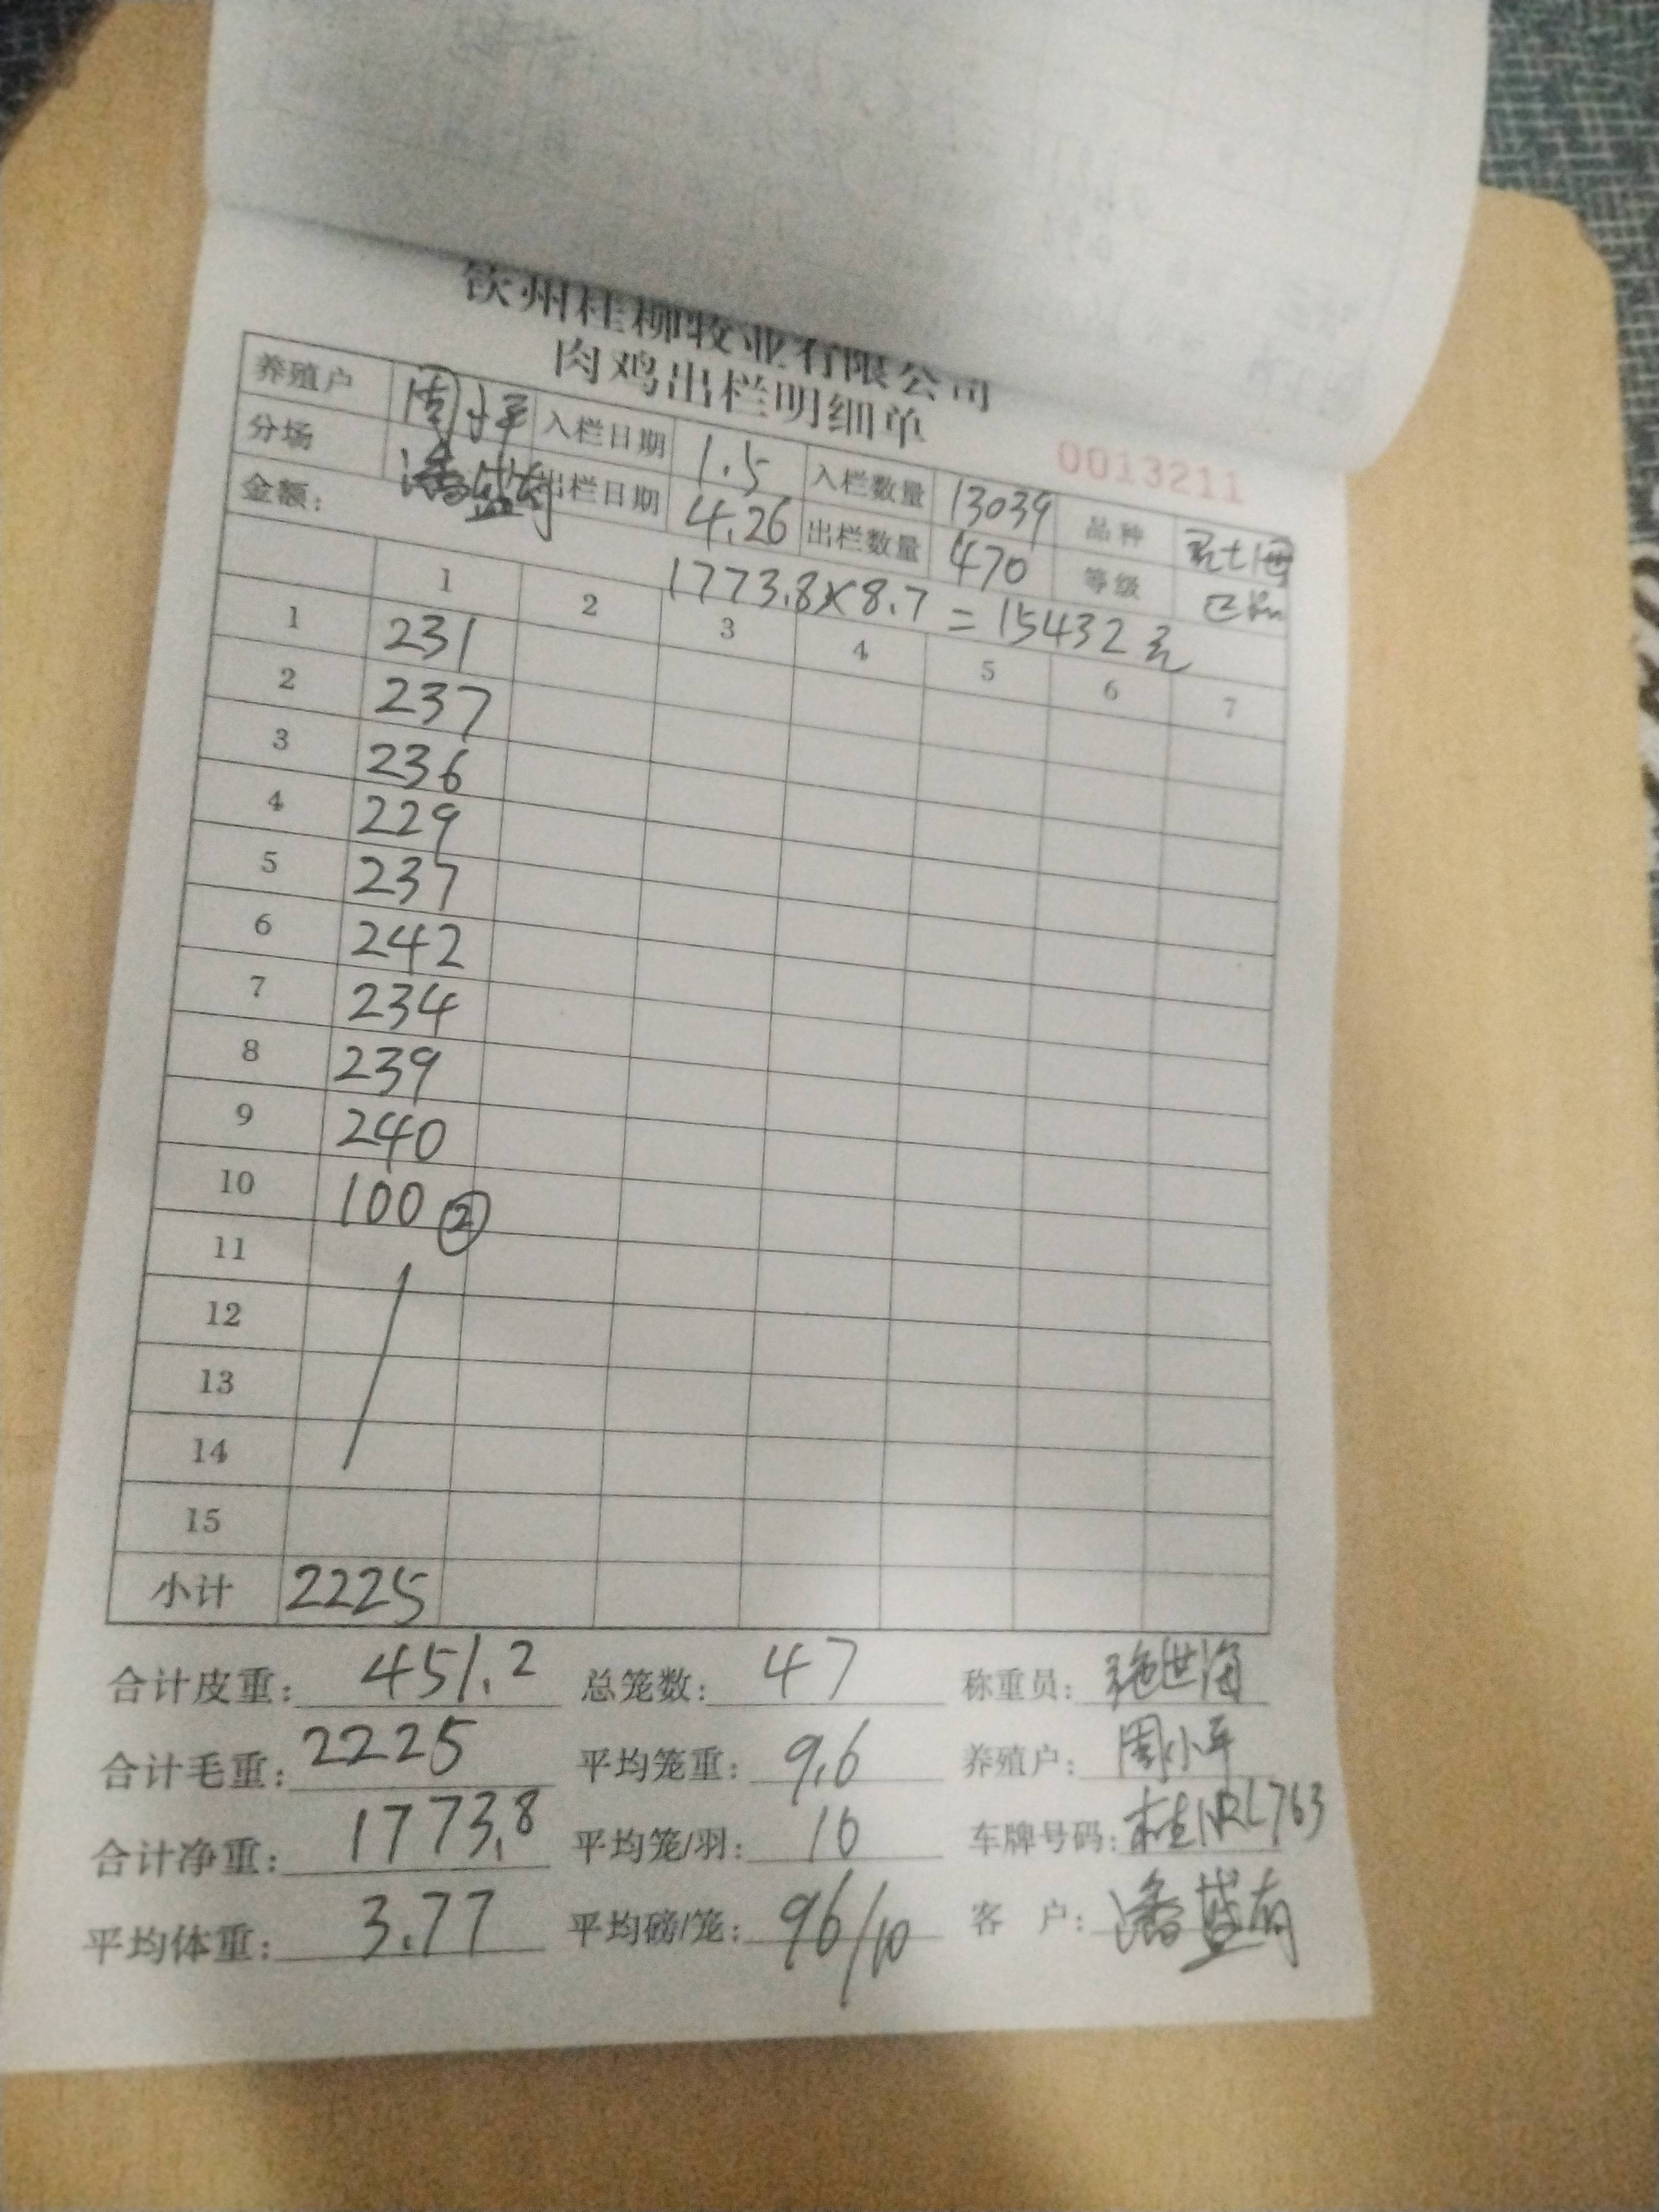 钦州桂柳牧业有限公司
肉鸡出栏明细单
0013211
养殖户 周小平 入栏日期 1.5 入栏数量 13039 品种
分场 潘盛有 出栏日期 4.26 出栏数量 470 等级
金额: 1773.8×8.7=15432元
1 2 3 4 5 6 7
1 231
2 237
3 236
4 229
5 237
6 242
7 234
8 239
9 240
10 100 ②
11
12
13
14
15
小计 2225
合计皮重: 451.2 总笼数: 47 称重员: 施世海
合计毛重: 2225 平均笼重: 9.6 养殖户: 周小平
合计净重: 1773.8 平均笼/羽: 10 车牌号码:
平均体重: 3.77 平均磅/笼: 96/10 客户: 潘盛有